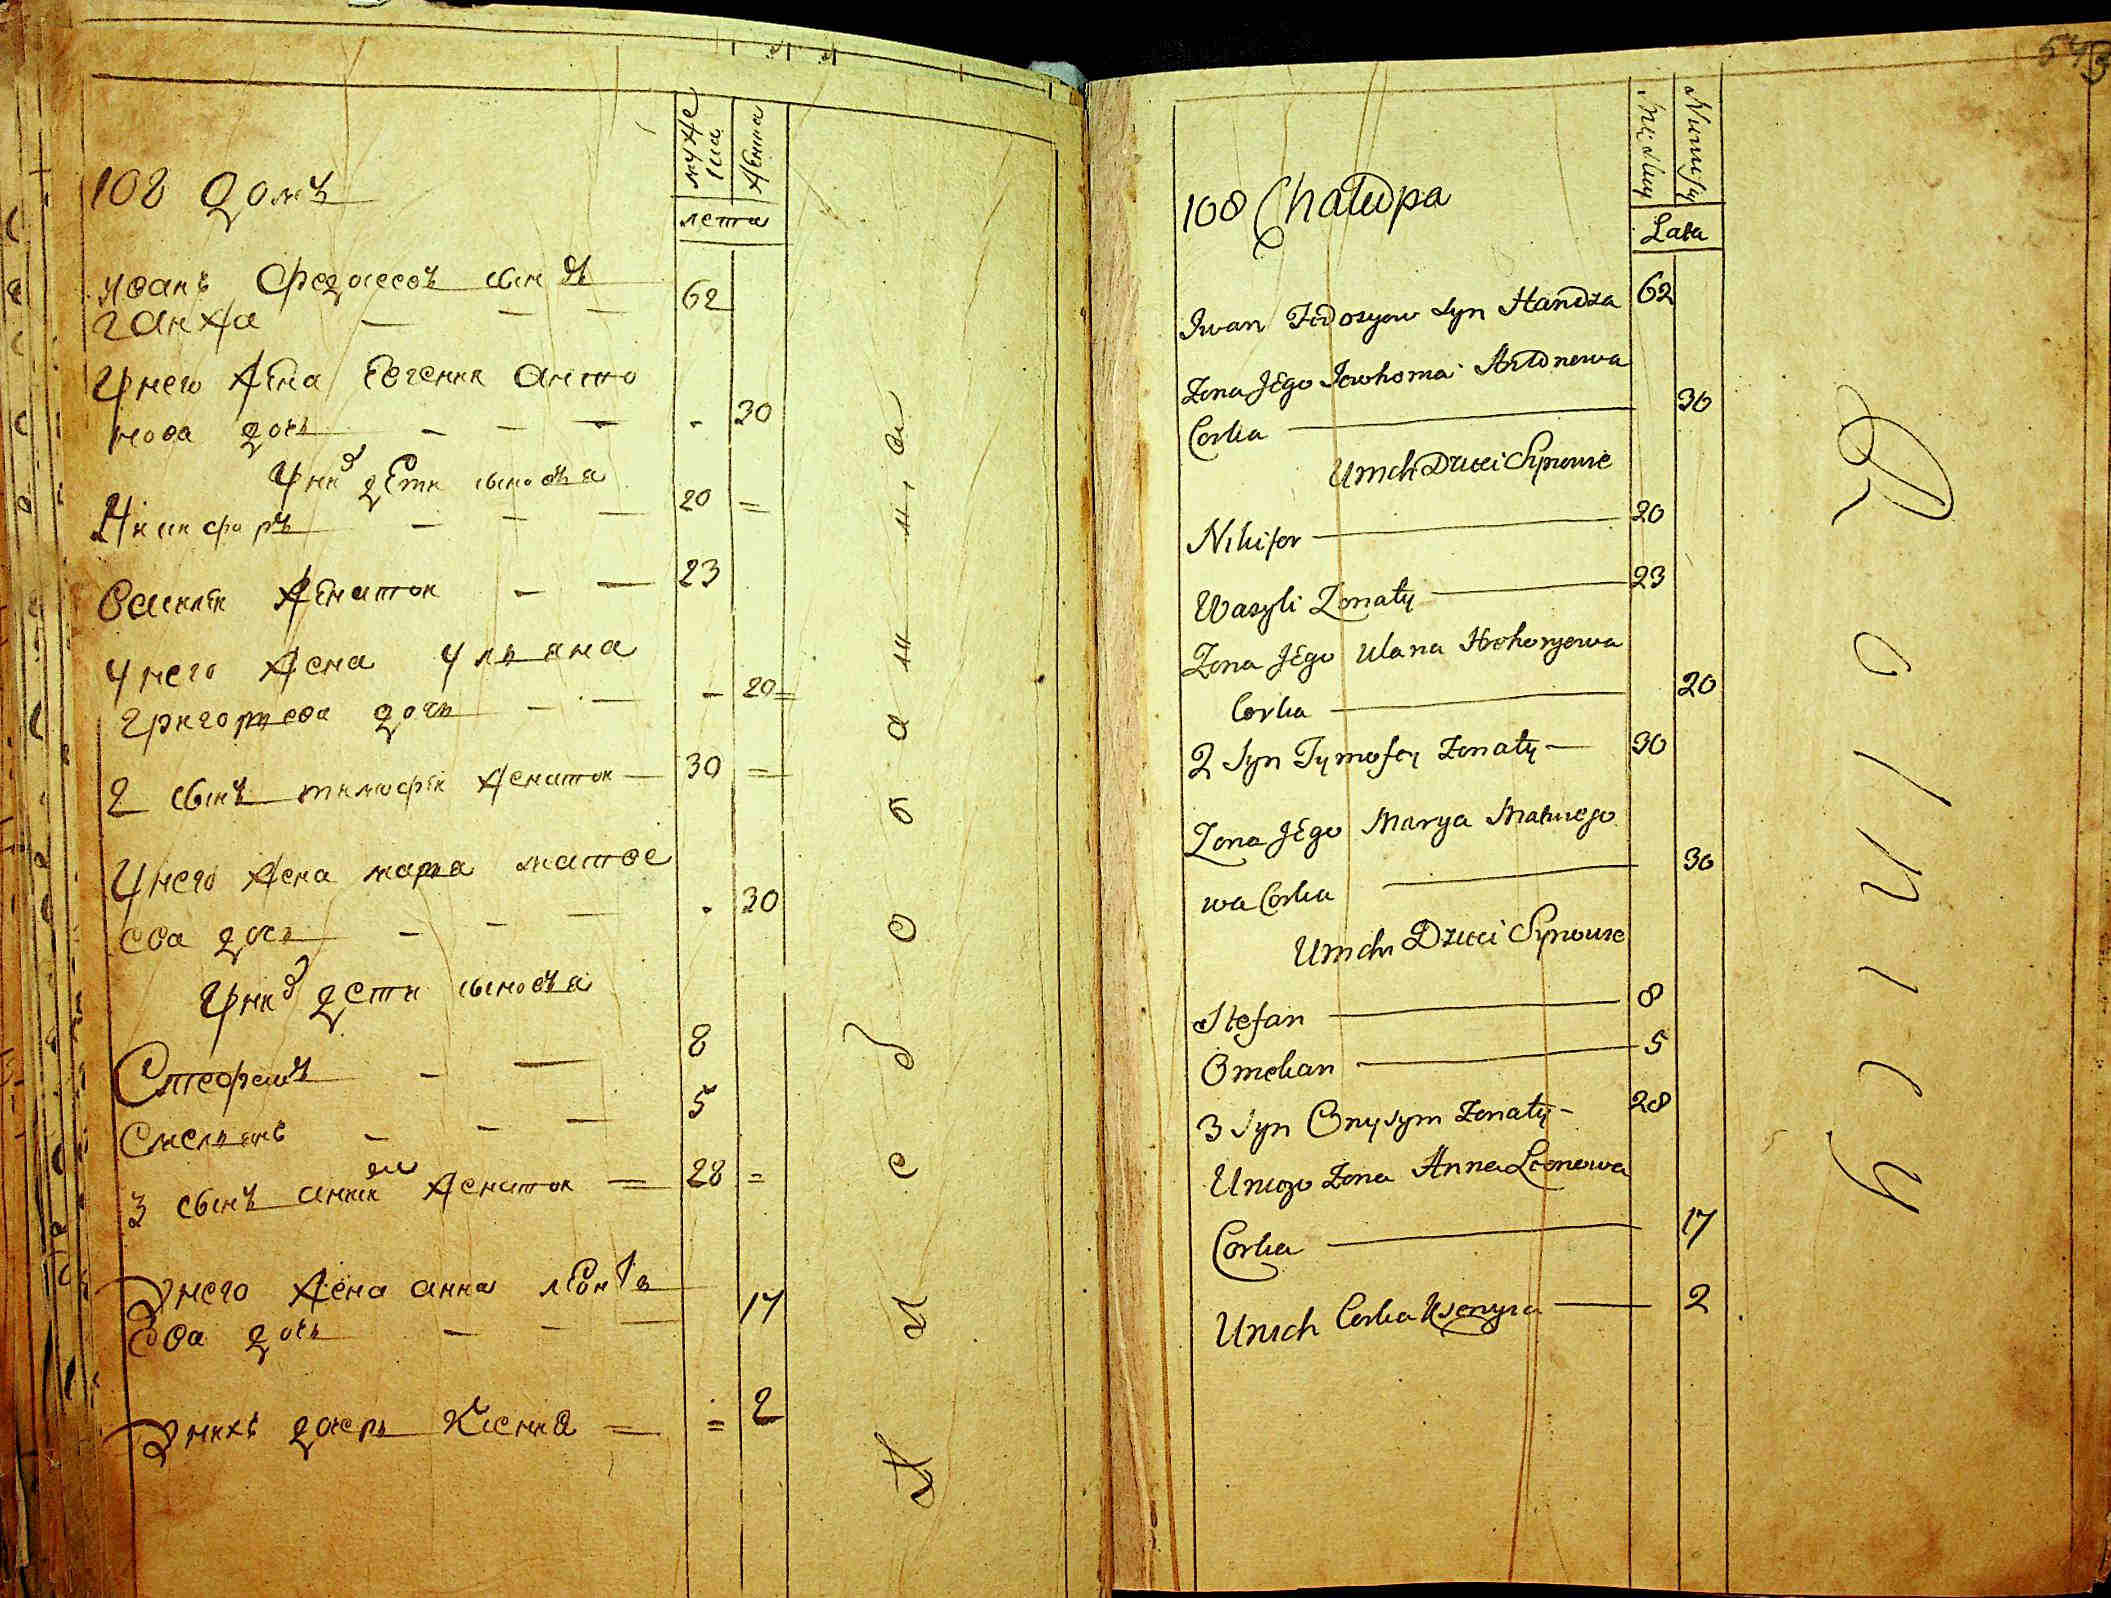 муже
ска
женска
лета
108 домъ
иванъ Федосеевъ сынъ
ганжа — — — 62
у него жена Евгения анто
нова дочь — — — 30
у них дети сыновья
Никифоръ — — — 20 =
Василей женатои — — 23
у него жена ульяна
григорьева дочь — — — 20 =
2 сынъ тимофей женатои — 30 =
у него жена марья матве
ева дочь — — — 30
у них дети сыновья
Стефанъ — — 8
Омельянъ — — — 5
3 сынъ женатои = 28 =
у него жена анна леонть
ева дочь — — — 17
у нихъ дочерь Ксения = = 2
543
Męskiy
Niewiesty
Lata
108 Chałupa
Iwan Fedosyow Syn Handza 62
Zona Jego Jewhoma Antonowa
Corka 30
U nich Dzieci Synowie
Nikifor 20
Wasyli Zonaty 23
Zona Jego Ulana Hrehoryowa
Corka 20
2 Syn Tymofey Zonaty — 30
Zona Jego Marya Matwieje
wa Corka 30
U nich Dzieci Synowie
Stefan 8
Omelian 5
3 Syn Onysym Zonaty — 28
U niego Zona Anna Leonowa
Corka 17
U nich Corka 2
Rolnicy